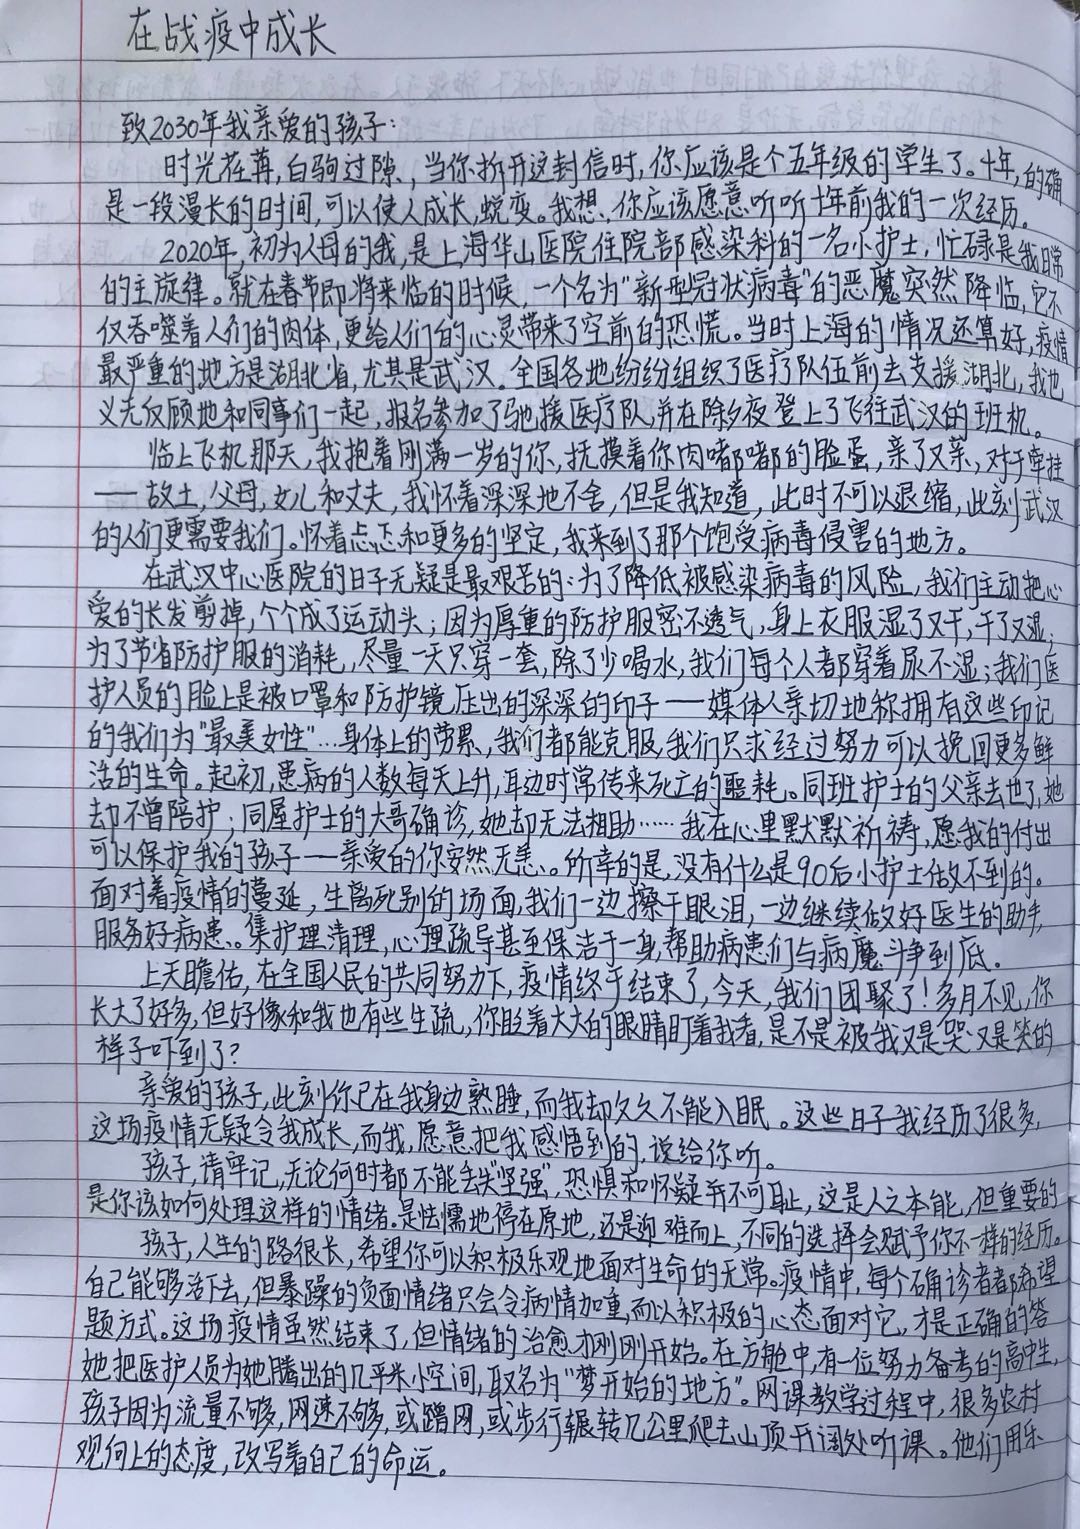 在战疫中成长
致2030年我亲爱的孩子:
时光荏苒,白驹过隙,当你拆开这封信时,你应该是个五年级的学生了。十年,的确
是一段漫长的时间,可以使人成长,蜕变。我想,你应该愿意听听十年前我的一次经历。
2020年,初为人母的我,是上海华山医院住院部感染科的一名小护士,忙碌是我日常
的主旋律。就在春节即将来临的时候,一个名为"新型冠状病毒"的恶魔突然降临,它不
仅吞噬着人们的肉体,更给人们的心灵带来了空前的恐慌。当时上海的情况还算好,疫情
最严重的地方是湖北省,尤其是武汉。全国各地纷纷组织了医疗队伍前去支援湖北,我也
义无反顾地和同事们一起,报名参加了驰援医疗队,并在除夕夜登上了飞往武汉的班机。
临上飞机那天,我抱着刚满一岁的你,抚摸着你肉嘟嘟的脸蛋,亲了又亲,对于牵挂
——故土,父母,女儿和丈夫,我怀着深深地不舍,但是我知道,此时不可以退缩,此刻武汉
的人们更需要我们。怀着忐忑和更多的坚定,我来到了那个饱受病毒侵害的地方。
在武汉中心医院的日子无疑是最艰苦的:为了降低被感染病毒的风险,我们主动把心
爱的长发剪掉,个个成了运动头;因为厚重的防护服密不透气,身上衣服湿了又干,干了又湿;
为了节省防护服的消耗,尽量一天只穿一套,除了少喝水,我们每个人都穿着尿不湿;我们医
护人员的脸上是被口罩和防护镜压出的深深的印子——媒体人亲切地称拥有这些印记
的我们为"最美女性"…身体上的劳累,我们都能克服,我们只求经过努力可以挽回更多鲜
活的生命。起初,患病的人数每天上升,耳边时常传来死亡的噩耗。同班护士的父亲去世了,她
却不曾陪护;同屋护士的大哥确诊,她却无法相助……我在心里默默祈祷,愿我的付出
可以保护我的孩子——亲爱的你安然无恙。所幸的是,没有什么是90后小护士做不到的。
面对着疫情的蔓延,生离死别的场面,我们一边擦干眼泪,一边继续做好医生的助手,
服务好病患。集护理清理,心理疏导甚至保洁于一身,帮助病患们与病魔斗争到底。
上天瞻佑,在全国人民的共同努力下,疫情终于结束了,今天,我们团聚了!多月不见,你
长大了好多,但好像和我也有些生疏,你眨着大大的眼睛盯着我看,是不是被我又是哭又是笑的
样子吓到了?
亲爱的孩子,此刻你已在我身边熟睡,而我却久久不能入眠。这些日子我经历了很多,
这场疫情无疑令我成长,而我,愿意把我感悟到的,说给你听。
孩子,请牢记,无论何时都不能丢失"坚强",恐惧和怀疑并不可耻,这是人之本能,但重要的
是你该如何处理这样的情绪。是怯懦地停在原地,还是迎难而上,不同的选择会赋予你不一样的经历。
孩子,人生的路很长,希望你可以积极乐观地面对生命的无常。疫情中,每个确诊者都希望
自己能够活下去,但暴躁的负面情绪只会令病情加重,而以积极的心态面对它,才是正确的答
题方式。这场疫情虽然结束了,但情绪的治愈才刚刚开始。在方舱中,有一位努力备考的高中生,
她把医护人员为她腾出的几平米小空间,取名为"梦开始的地方"。网课教学过程中,很多农村
孩子因为流量不够,网速不够,或蹭网,或步行辗转几公里爬去山顶开阔处听课。他们用乐
观向上的态度,改写着自己的命运。